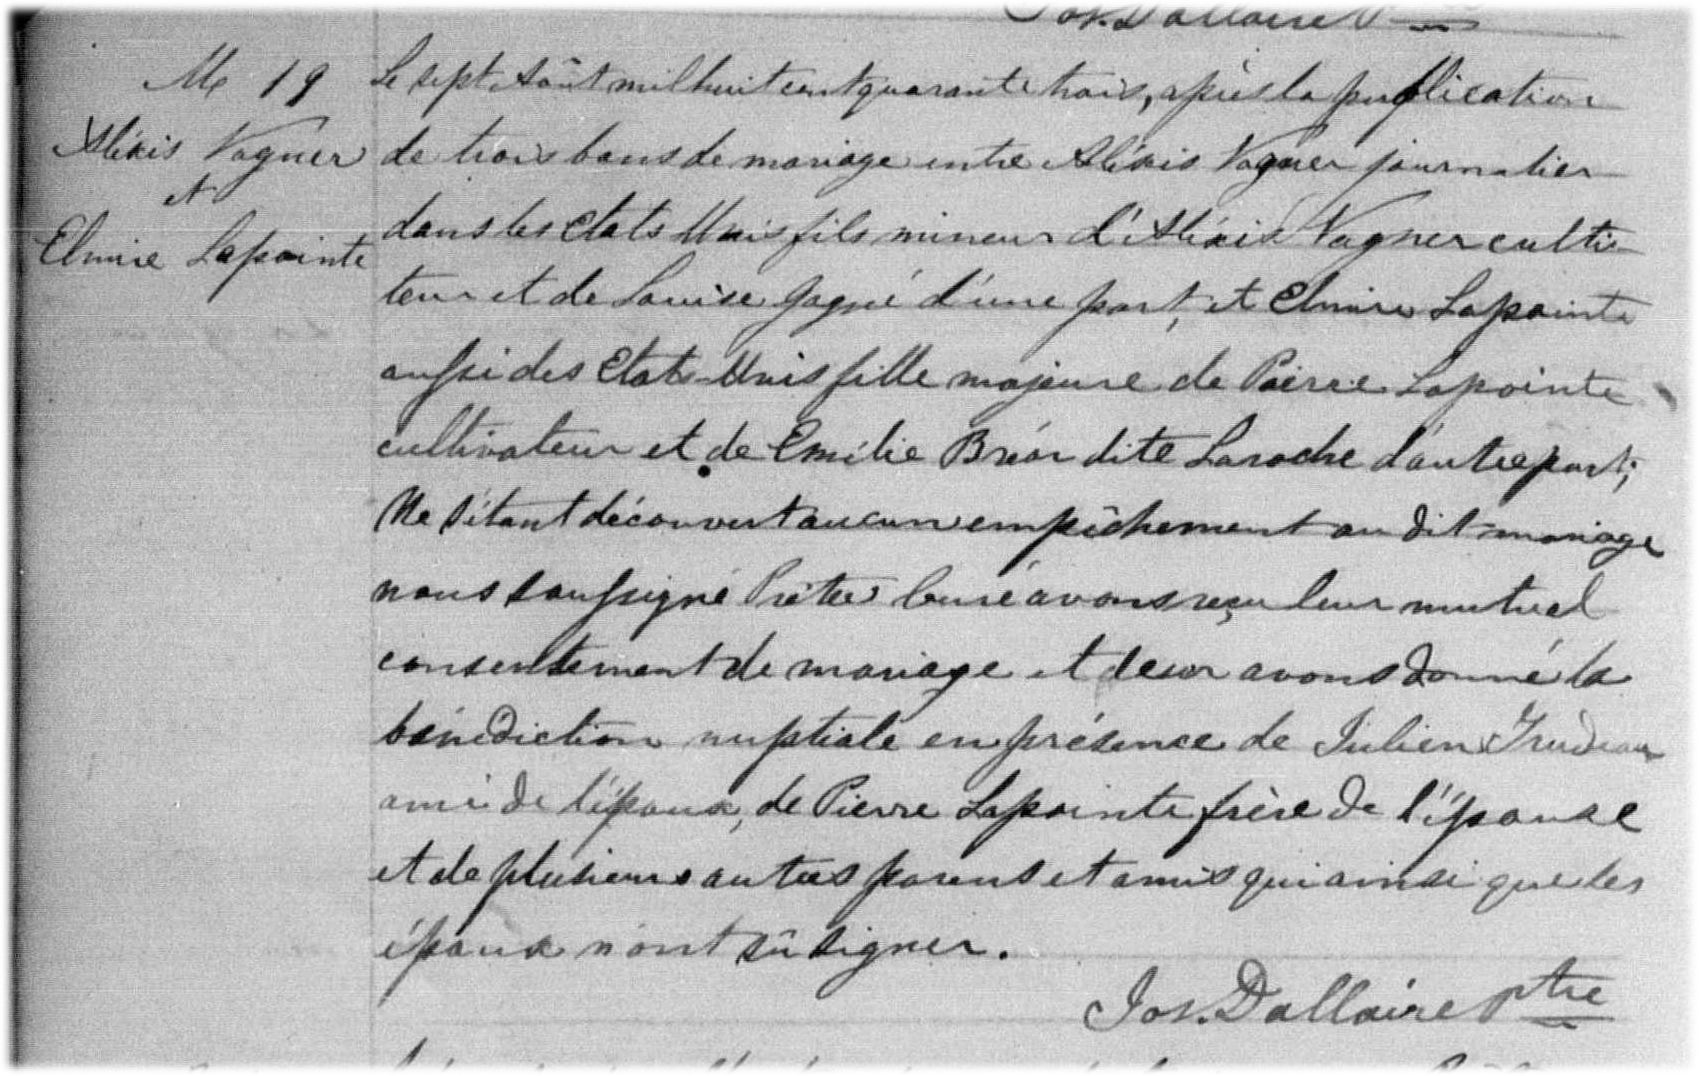 Jos. Dallaire Ptre
M 19
Aléxis Vagner
et
Elmire Lapointe
Le sept Août mil huit cent quarante trois, après la publication
de trois bans de mariage entre Aléxis Vagner journalier
dans les Etats Unis fils mineur d'Aléxis Vagner culti-
teur et de Louise Gagné d'une part, et Elmire Lapointe
aussi des Etats-Unis fille majeure de Pierre Lapointe
cultivateur et de Emélie Bréar dite Laroche d'autre part;
Ne s'étant découvert aucun empêchement au dit mariage
nous soussigné Prêtre Curé avons reçu leur mutuel
consentement de mariage et leur avons donné la
bénédiction nuptiale en présence de Julien Trudeau
ami de l'époux, de Pierre Lapointe frère de l'épouse
et de plusieurs autres parens et amis qui ainsi que les
époux n'ont sû signer.
Jos. Dallaire Ptre